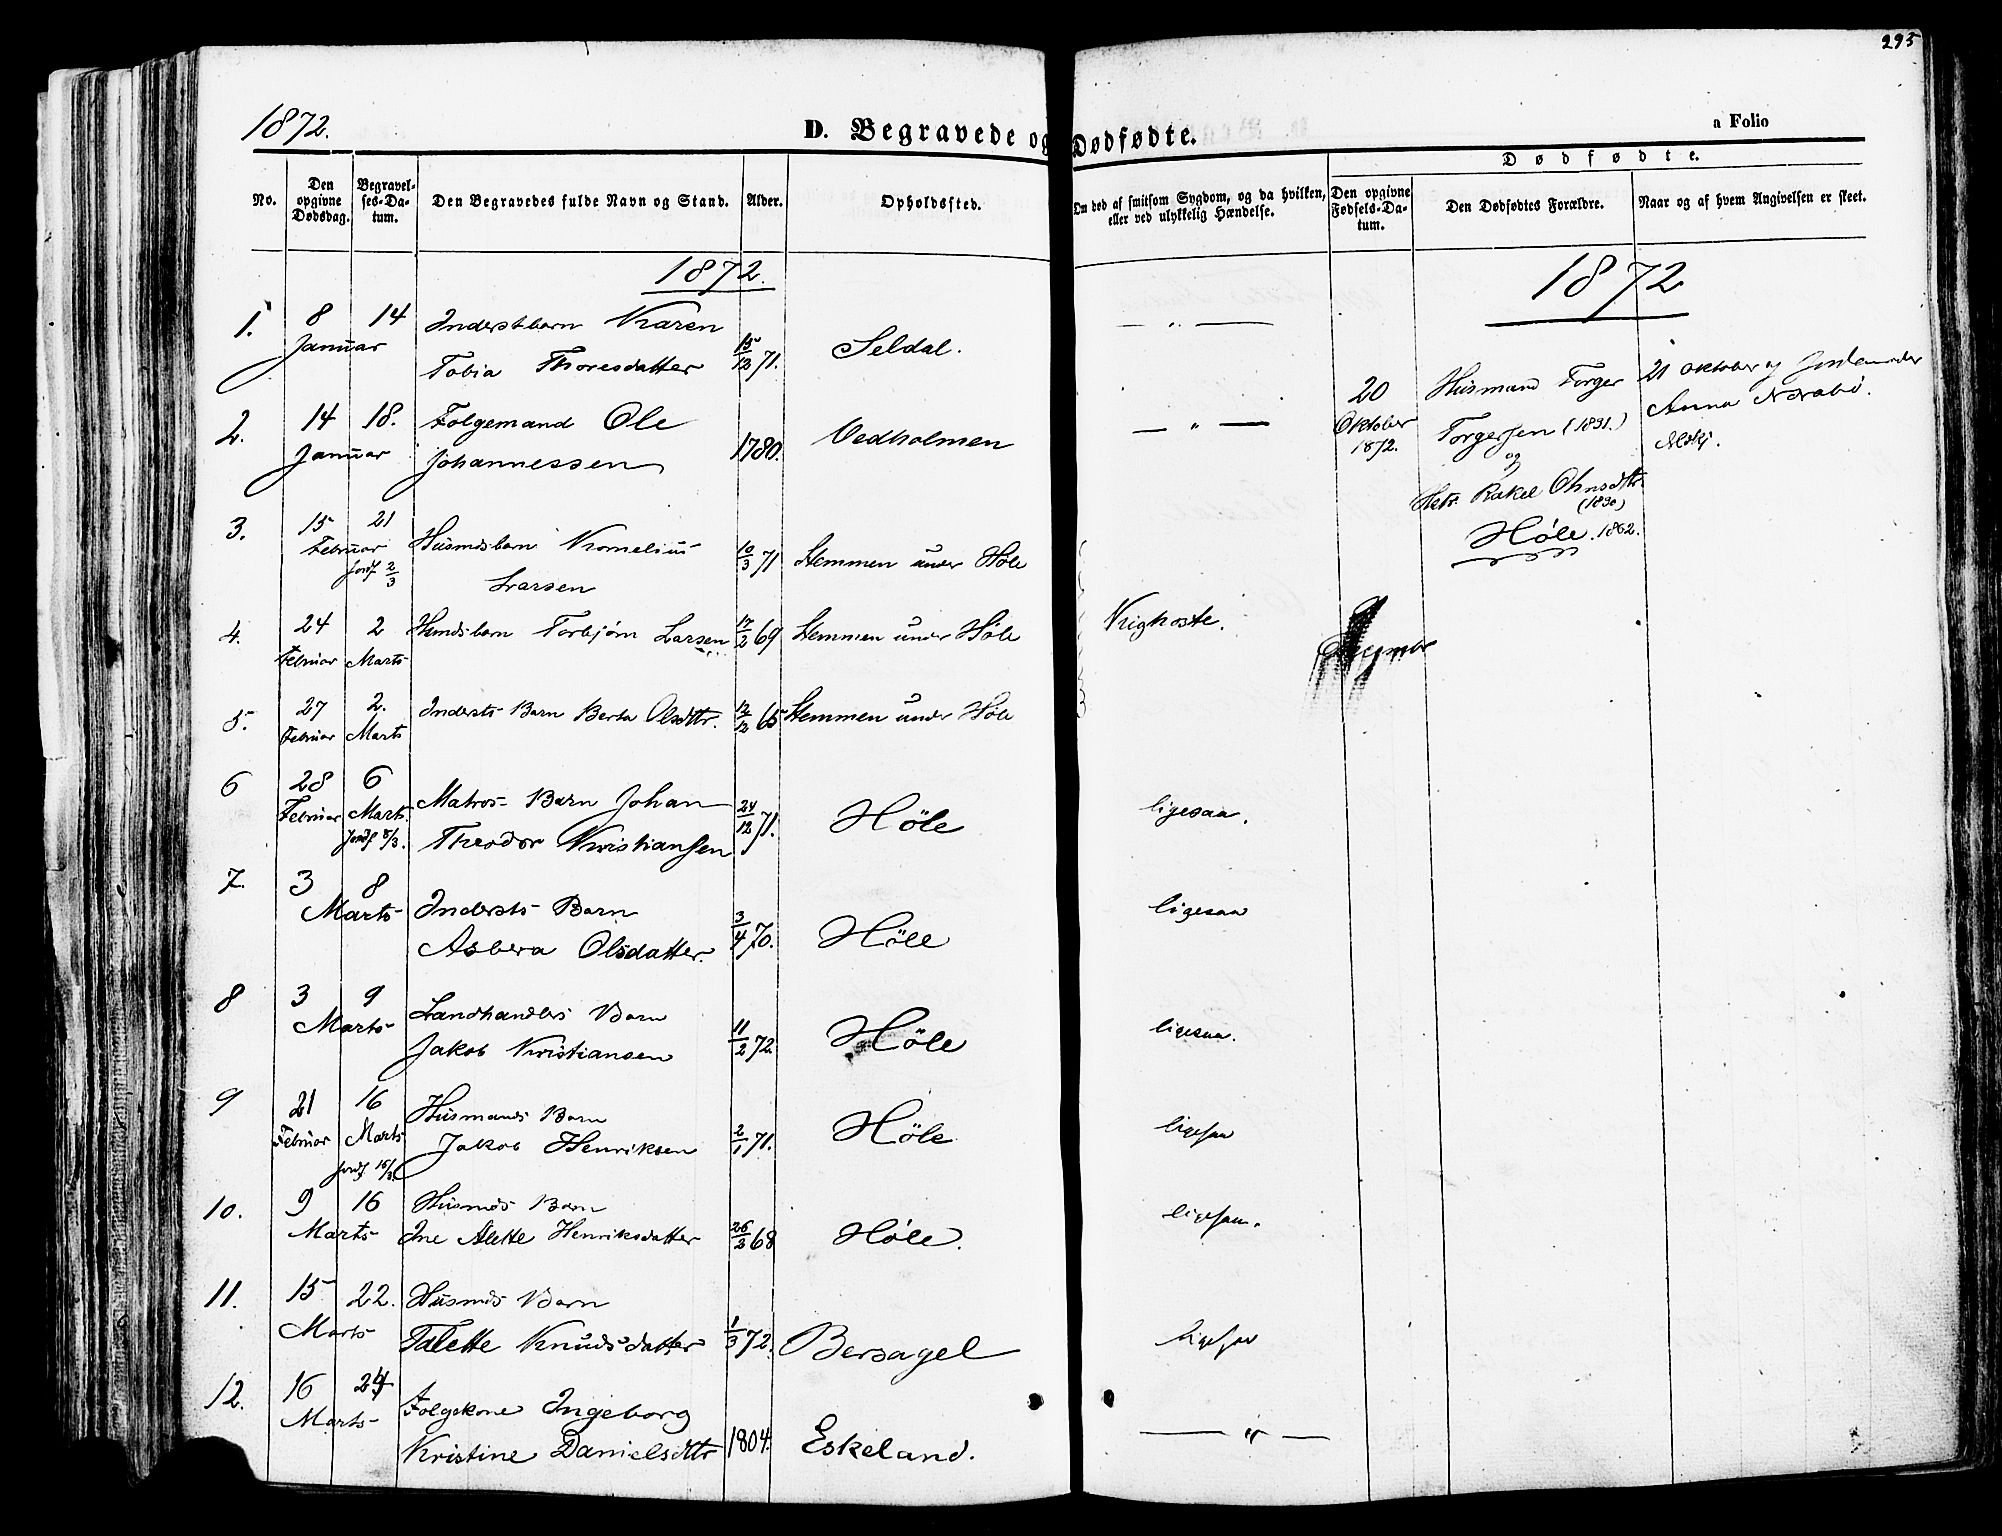 295
1872.
D. Begravede og Dødfødte.
a Folio
Dødfødte.
No.
Den opgivne Dødsdag.
Begravelses-Datum.
Den Begravedes fulde Navn og Stand.
Alder.
Opholdssted.
Om død af smitsom Sygdom, og da hvilken, eller ved ulykkelig Hændelse.
Den opgivne Fødsels-Datum.
Den Dødfødtes Forældre.
Naar og af hvem Angivelsen er skeet.
1872.
1872
1. 8 14 Inderstbarn Karen
Januar Tobia Thoresdatter 15/12 71. Seldal. — " —
2. 14 18. Folgemand Ole
Januar Johannessen 1780. Vedholmen — " —
3. 15 21 Husmdsbarn Kornelius
Februar Larsen 10/3 71 Stemmen under Höle
Jordf 2/3
4. 24 2 Husmdsbarn Torbjörn Larsen 17/2 69 Stemmen under Höle Kighoste.
Februar Marts
5. 27 2. Indersts Barn Berta Olsdttr. 12/12 65 Stemmen under Höle
Februar Marts
6 28 6 Matros- Barn Johan
Februar Marts. Theodor Kristiansen 24/12 71. Höle ligesaa.
Jordf 8/3.
7. 3 8 Indersts Barn
Marts Asbera Olsdatter. 3/4 70. Höle ligesaa
8 3 9 Landhandlers Barn
Marts Jakob Kristiansen 11/2 72. Höle ligesaa.
9 21 16 Husmands Barn
Februar Marts Jakob Henriksen 2/1 71. Höle ligesaa
Jordf 16/3.
10. 9 16 Husmds Barn
Marts Ine Alette Henriksdatter 26/2 68 Höle. ligesaa.
11. 15 22. Husmds Barn
Marts Talette Knudsdatter 1/3 72. Bersagel ligesaa
12. 16 24 Folgekone Ingeborg
Marts Kristine Danielsdttr 1804. Eskeland. — " —
20 Oktober 1872.
Husmand Torger
Torgersen (1831.)
og
Rakel Ohnsdttr.
(1830)
Höle. 1862.
21 Oktober af Jordemoder
Anna